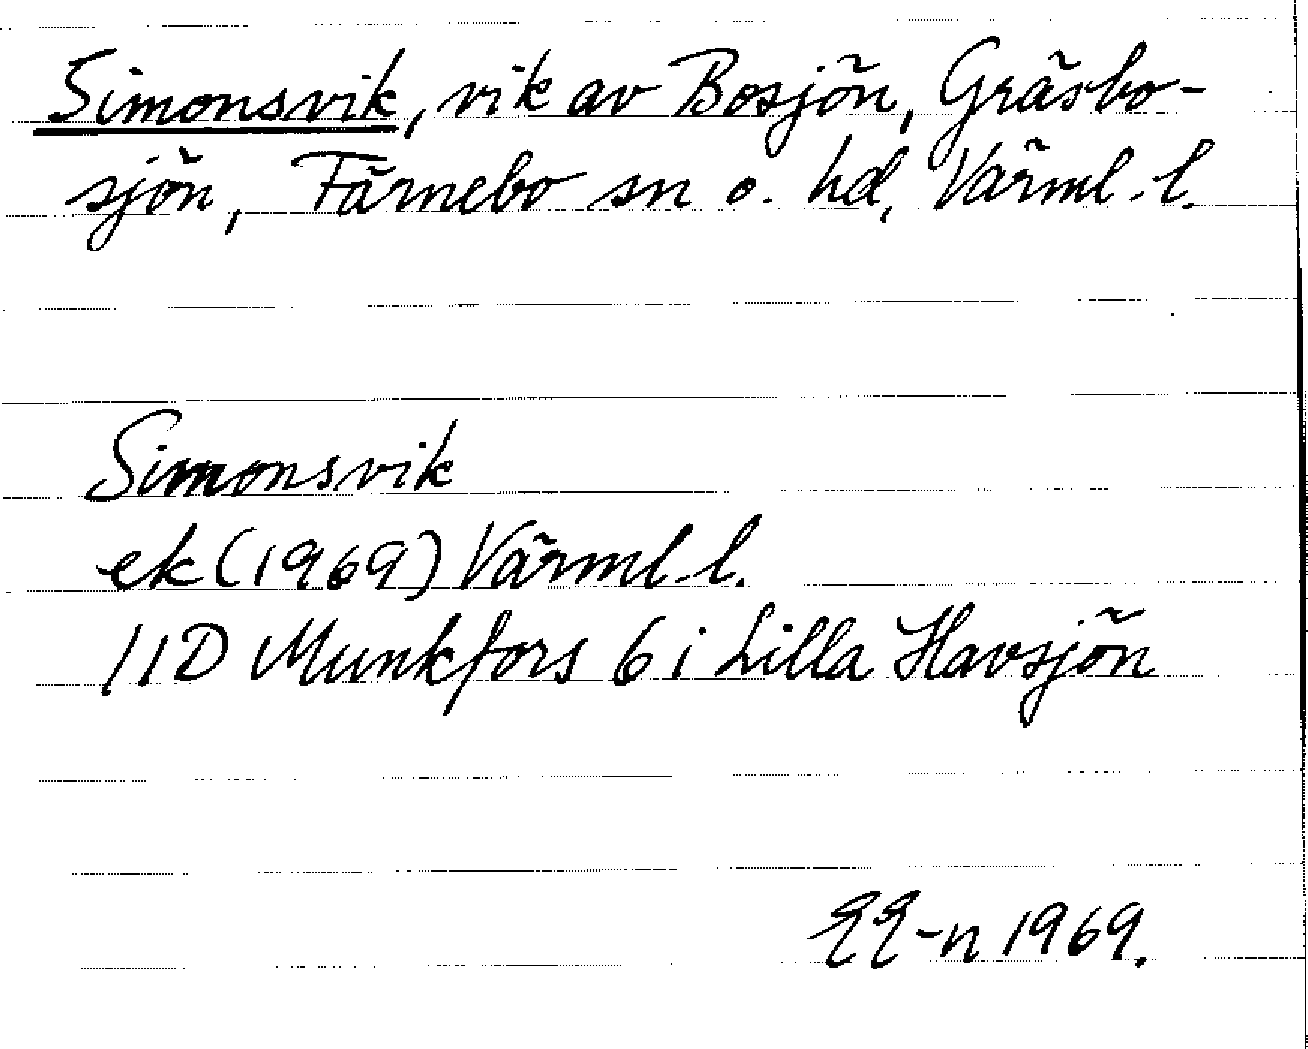 Simonsvik, vik av Bosjön, Gräsbo-
sjön, Färnebo sn o. hd, Värml. l.
Simonsvik
ek (1969) Värml. l.
11D Munkfors 6 i Lilla Havsjön
EE-n 1969.